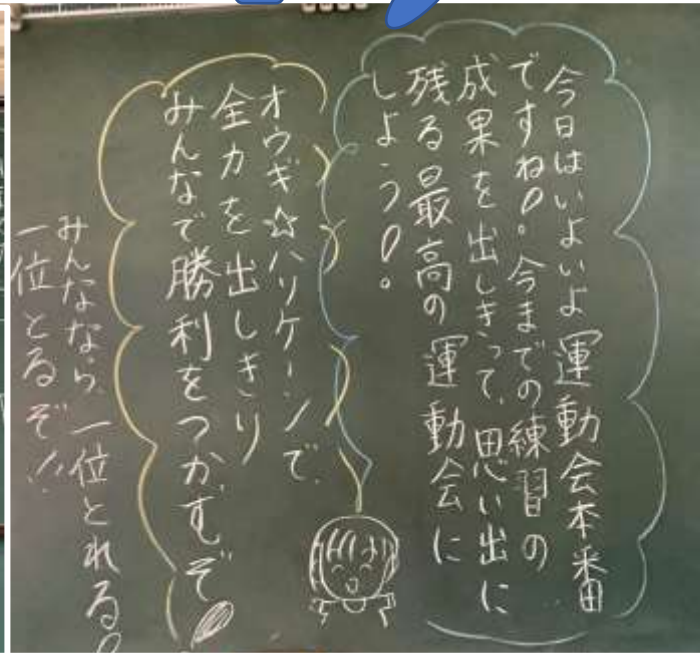 今日はいよいよ運動会本番
ですね!。今までの練習の
成果を出しきって、思い出に
残る最高の運動会に
しよう!。
オウギ☆ハリケーンで、
全力を出しきり
みんなで勝利をつかむぞ!
みんななら、一位とれる!
一位とるぞ!!